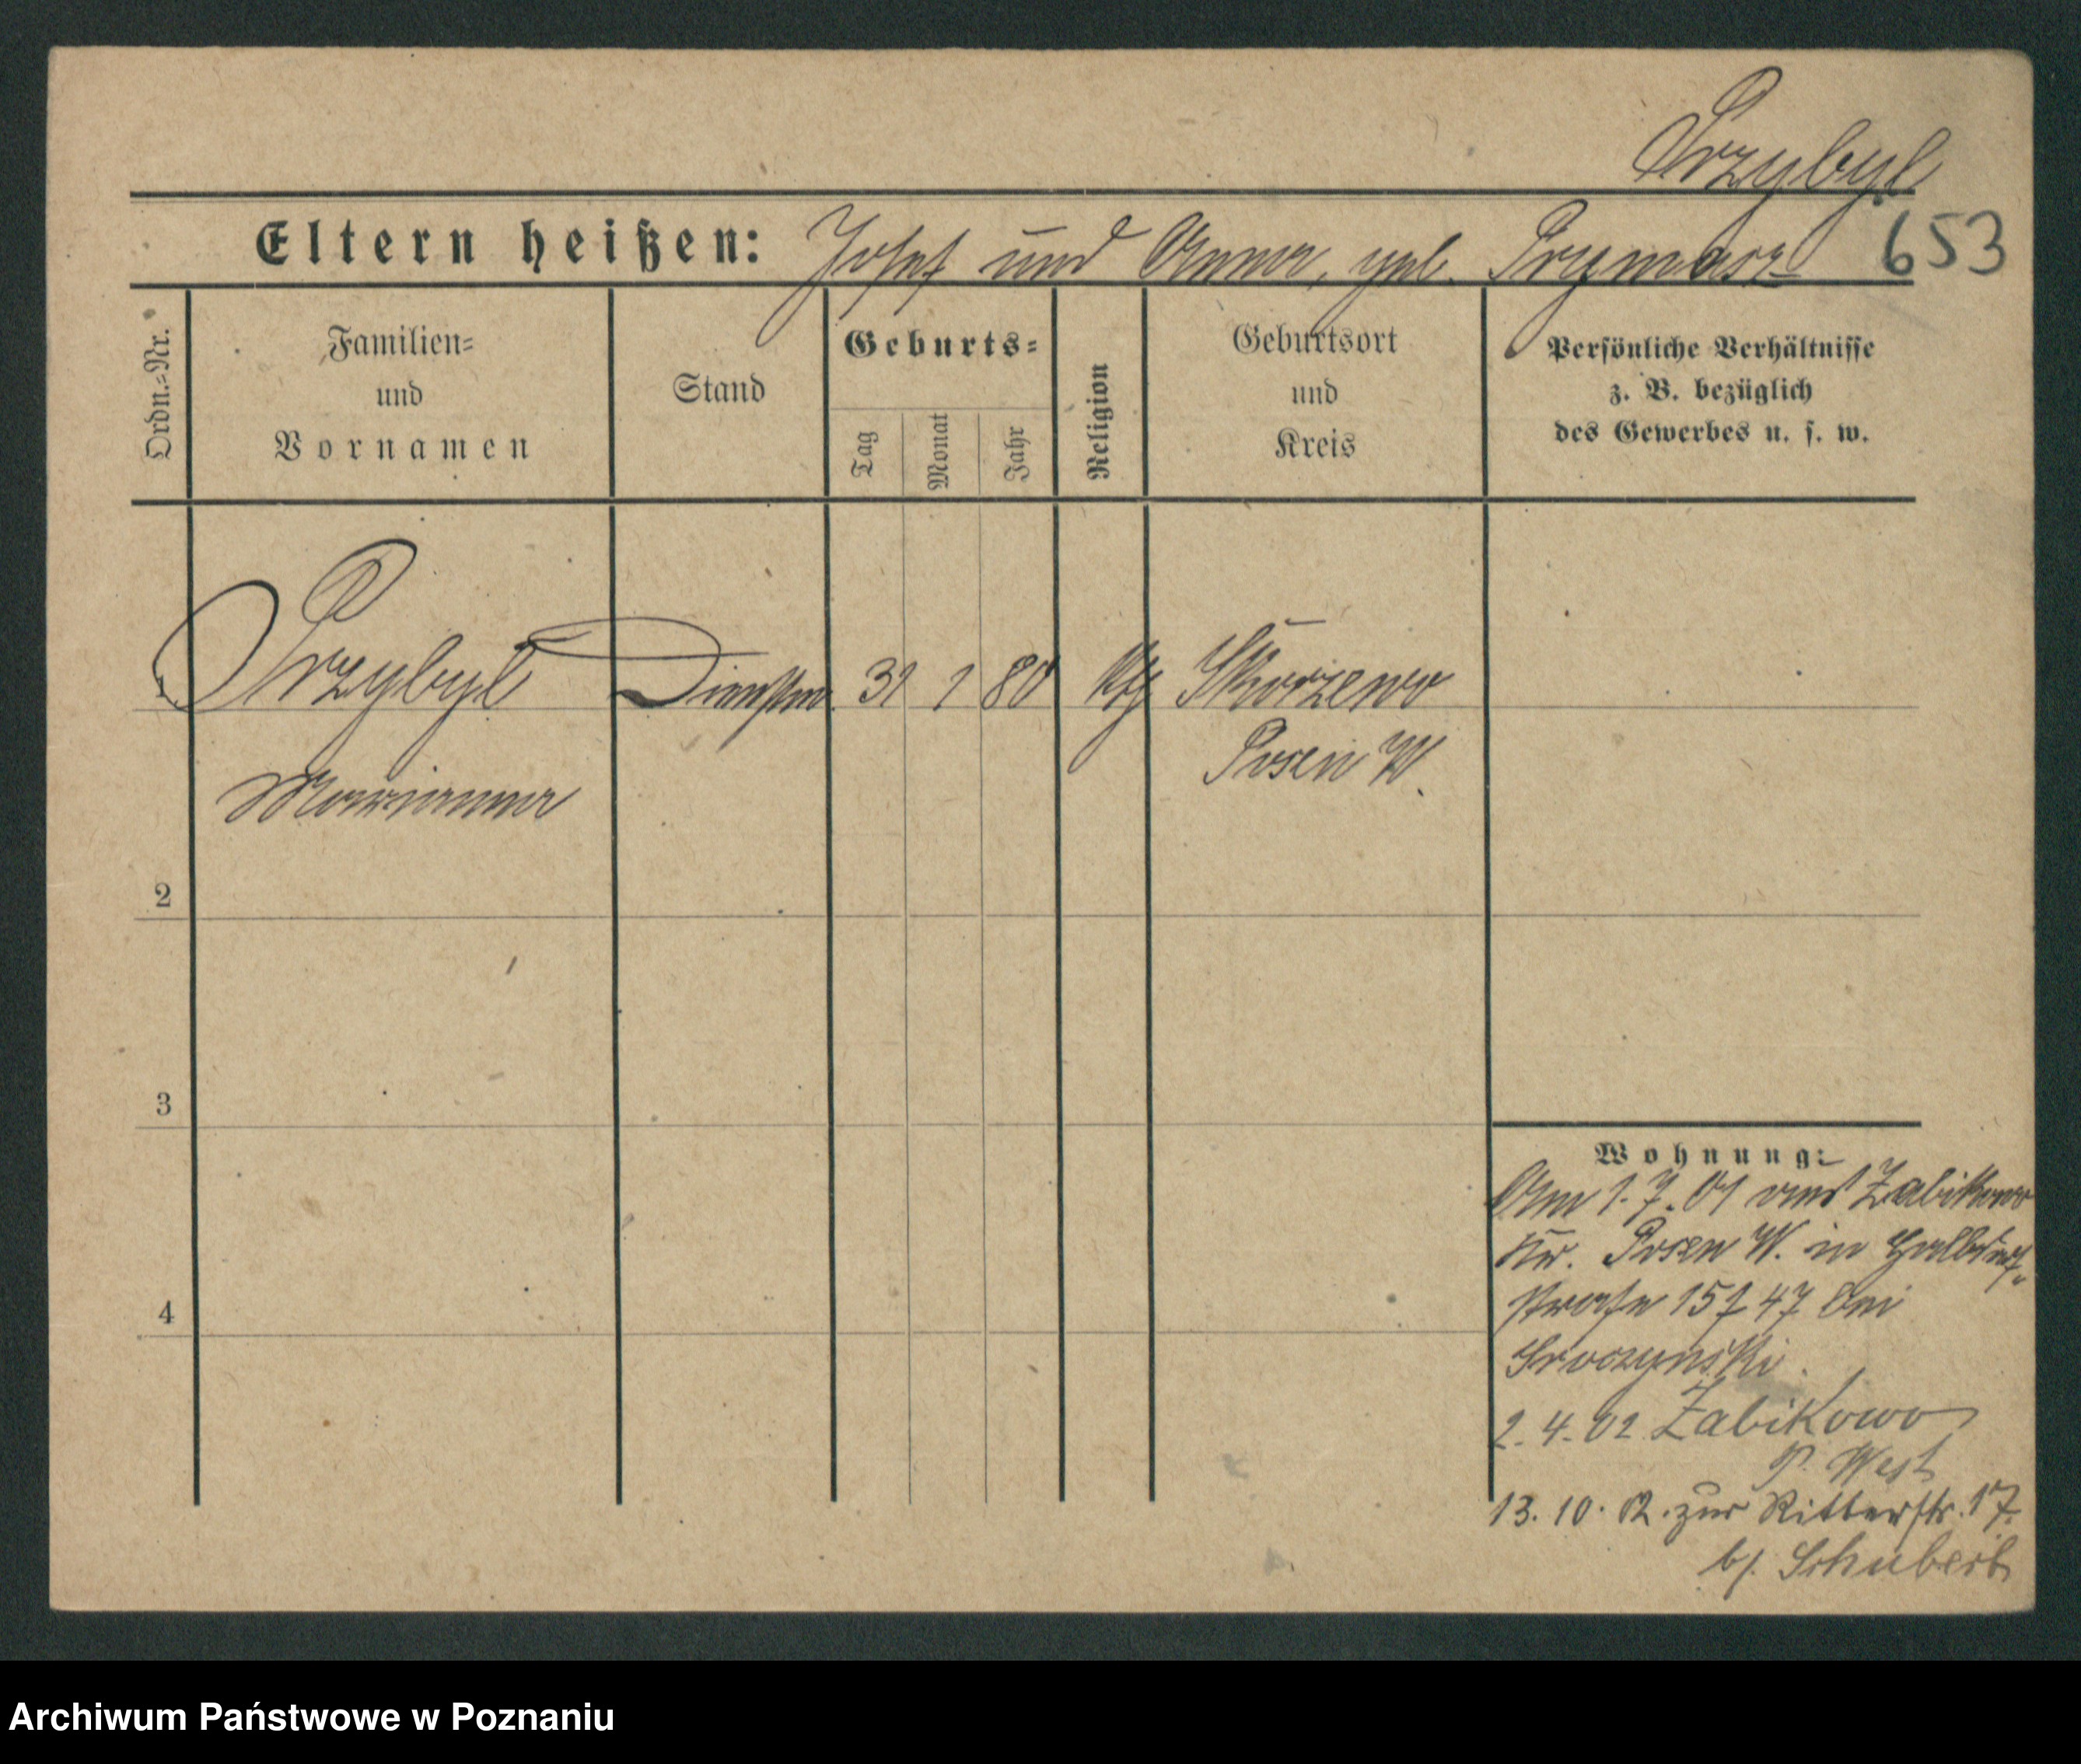 Przybyl
Eltern heißen: Josef und Anna, geb. Prymasz 653
Ordn.-Nr.
Familien-
und
Vornamen
Stand
Geburts-
Tag
Monat
Jahr
Religion
Geburtsort
und
Kreis
Persönliche Verhältnisse
z. B. bezüglich
des Gewerbes u. s. w.
1 Przybyl Dienstm. 31 1 80 Kth Skorzewo
Posen W.
Marianna
2
3
4
Wohnung:
Am 1.7.01 aus Zabikowo
Kr. Posen W. in Halbdorf-
straße 47 bei
2.4.02 Zabikowo
P. West
13.10.02. zur Ritterstr. 17.
b/. Schubert
Archiwum Państwowe w Poznaniu